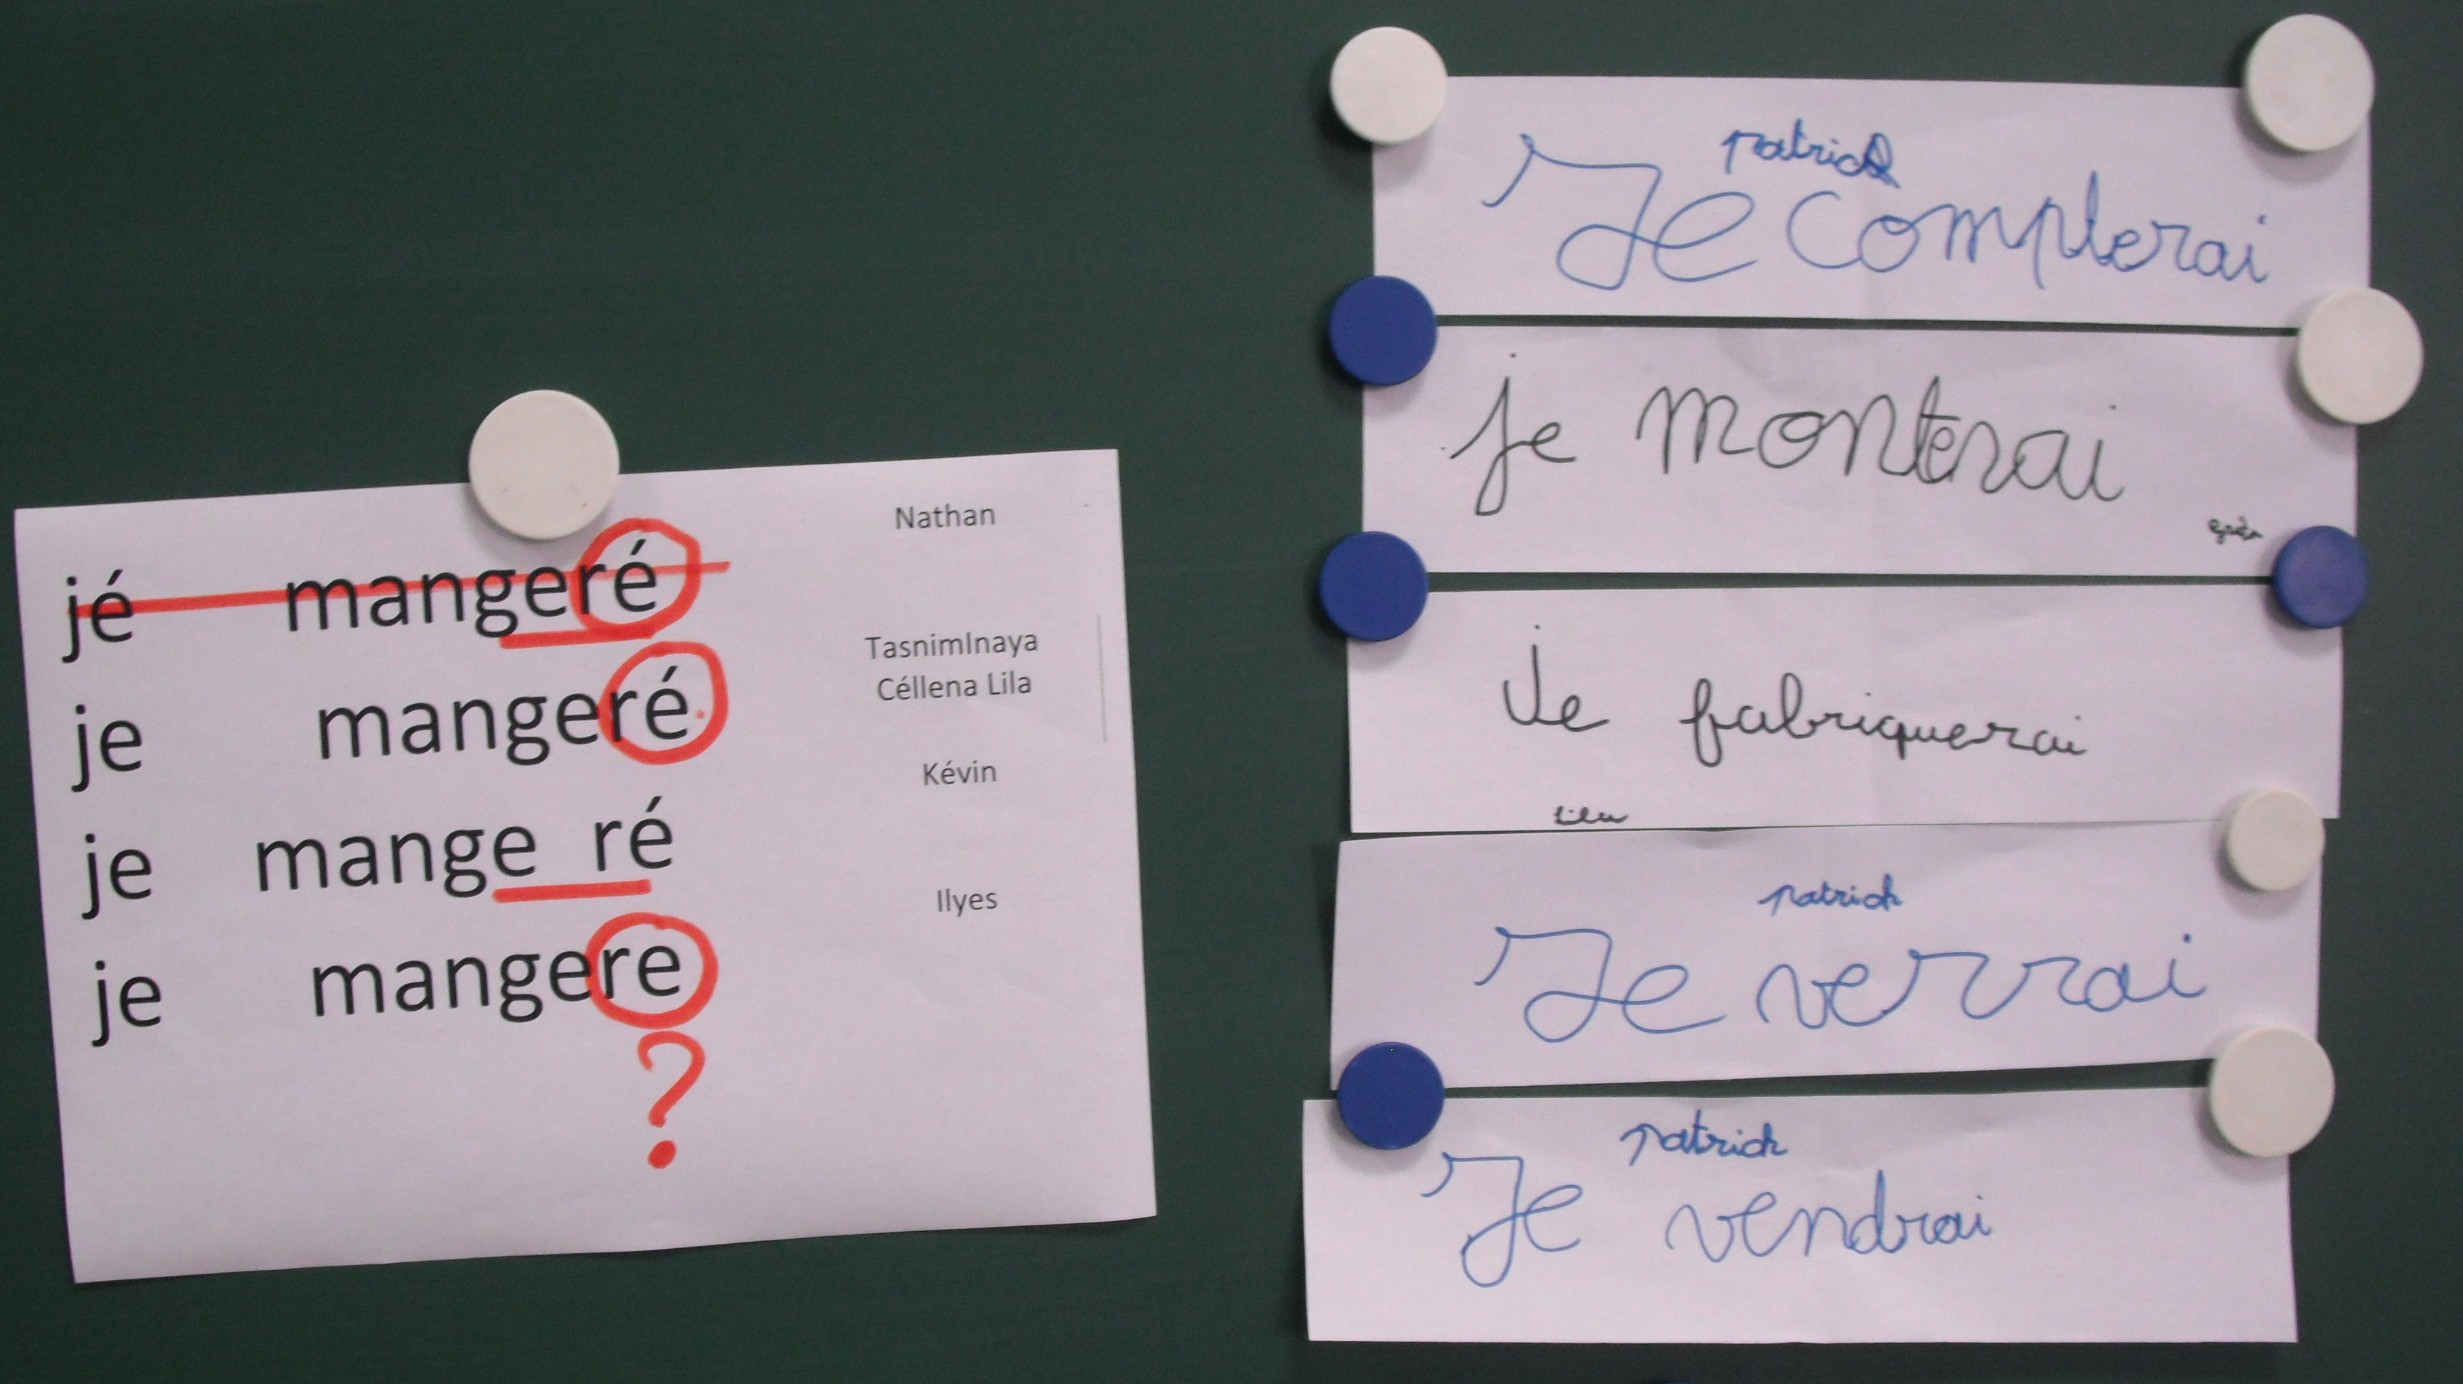 jé mangeré Nathan
je mangeré TasnimInaya
Céllena Lila
je mange ré Kévin
je mangere Ilyes
?
patrick
Je compterai
je monterai
Je fabriquerai
Lila
patrick
Je verrai
patrick
Je vendrai